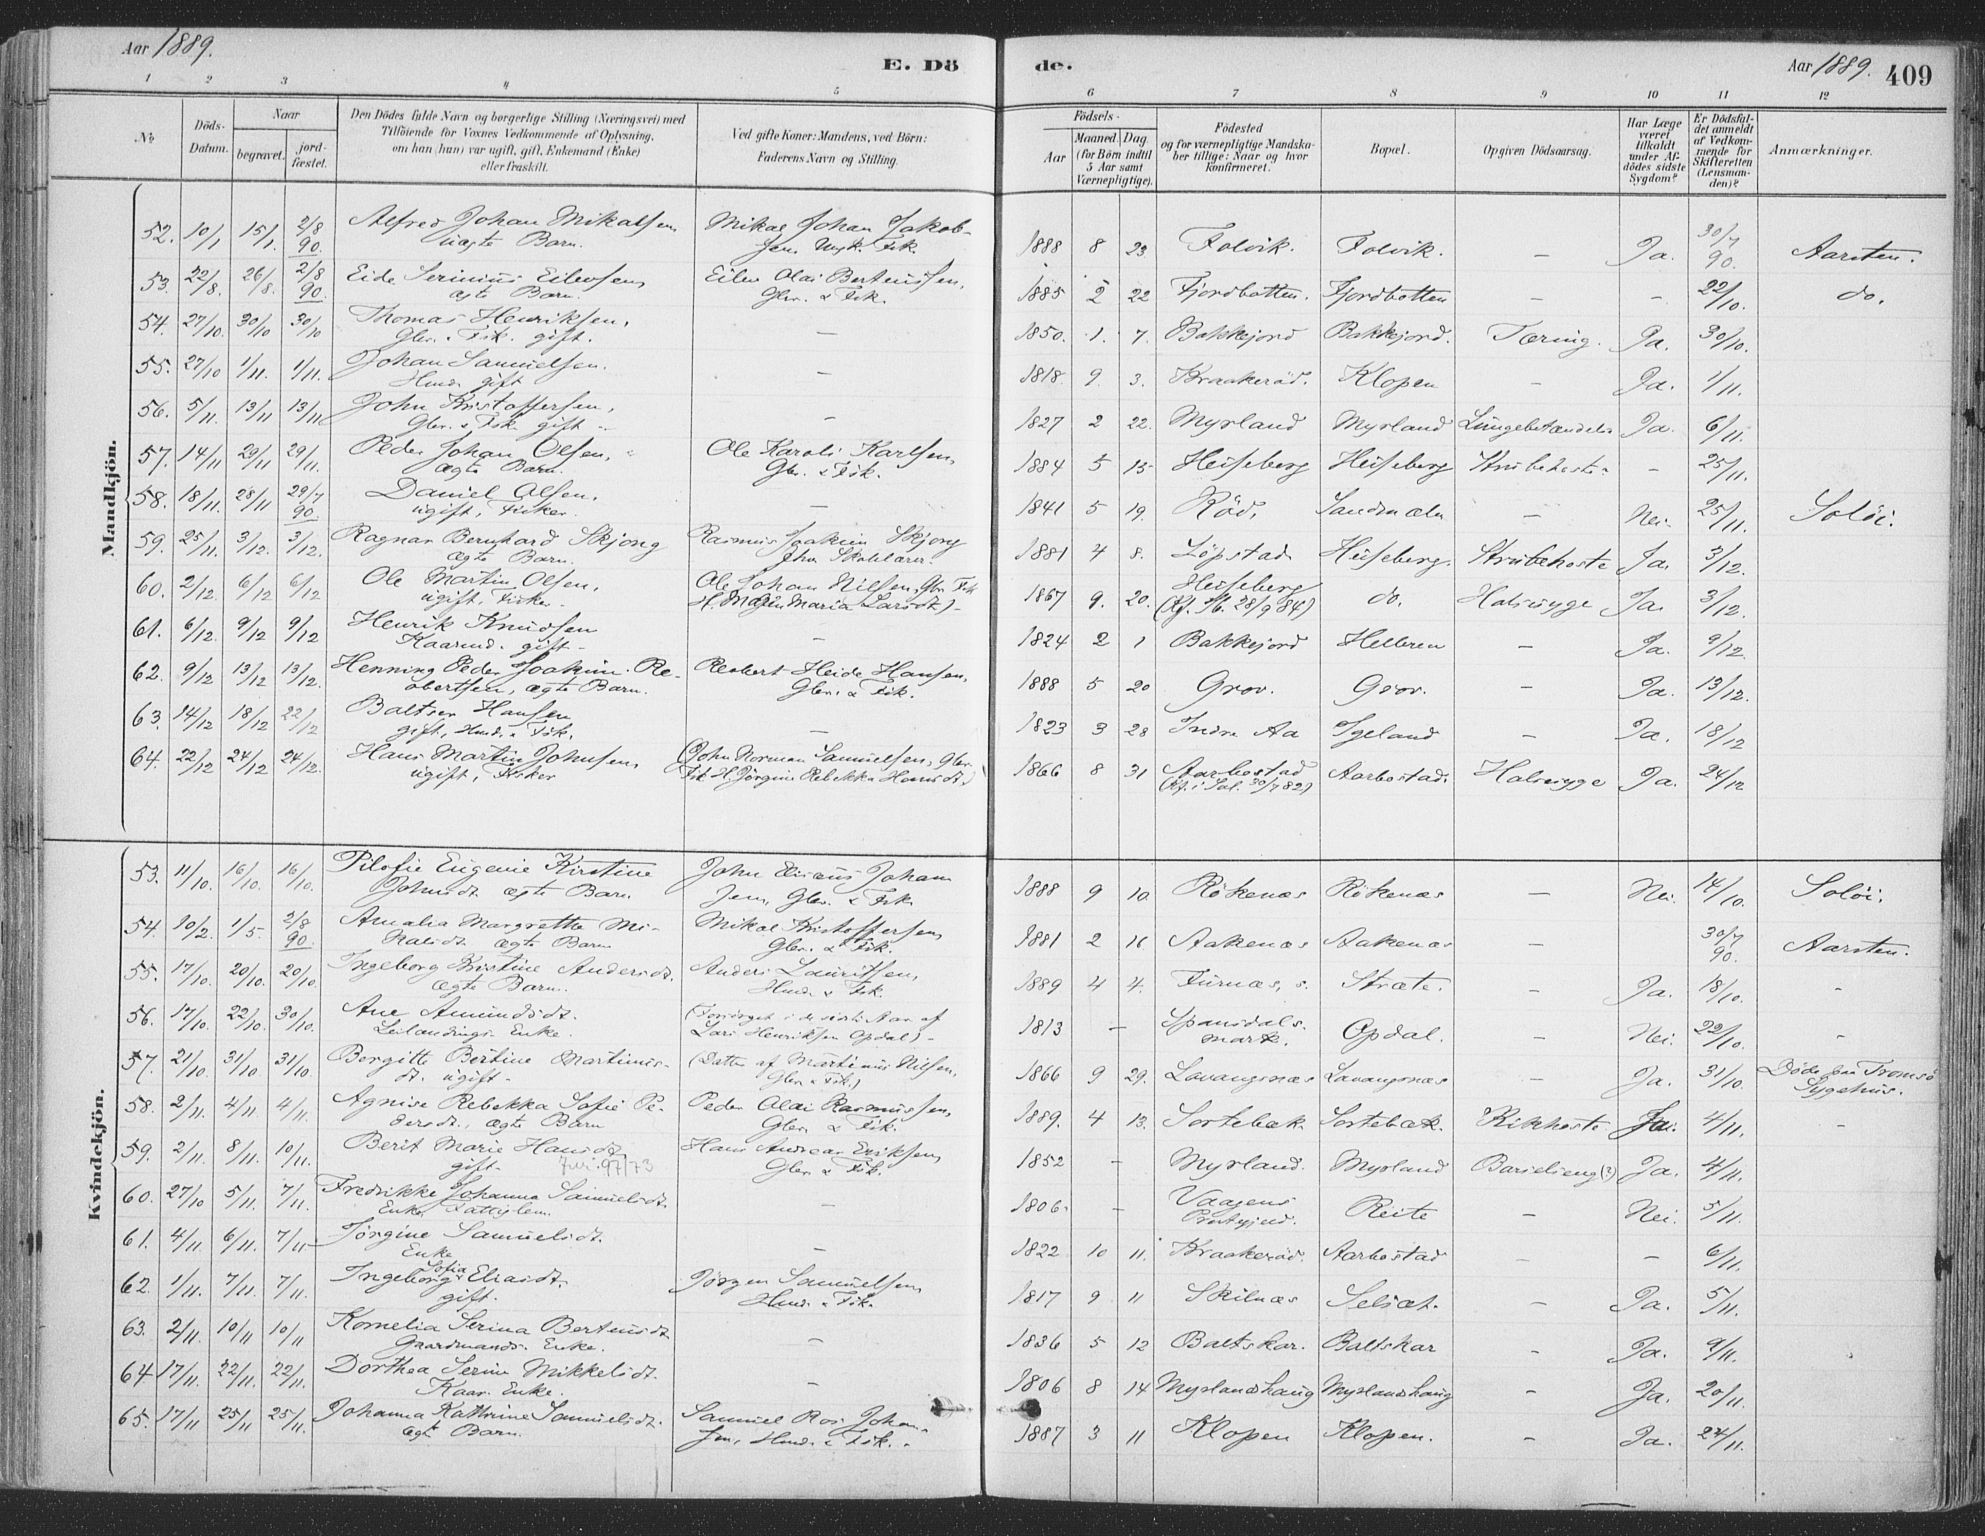 Aar 1889.
E. Dö
de.
Aar 1889.
409
1 2 3 4 5
6 7 8 9 10 11 12
No
Döds-
Datum.
Naar
begravet.
jord-
fæstet.
Den Dödes fulde Navn og borgerlige Stilling (Næringsvei) med
Tilföiende for Voxnes Vedkommende af Oplysning,
om han (hun) var ugift, gift, Enkemand (Enke)
eller fraskilt.
Ved gifte Koner: Mandens, ved Börn:
Faderens Navn og Stilling.
Födsels-
Aar
Maaned. Dag
(for Börn indtil
5 Aar samt
Værnepligtige).
Födested
og for værnepligtige Mandska-
ber tillige: Naar og hvor
konfirmeret.
Bopæl.
Opgiven Dödsaarsag.
Har Læge
været
tilkaldt
under Af-
dödes sidste
Sygdom?
Er Dödsfal-
det anmeldt
af Vedkom-
mende for
Skifteretten
(Lensman-
den)?
Anmærkninger.
Mandkjön.
52. 10/1 15/1. 2/8 90. Alfred Johan Mikalsen, Mikal Johan Jakob-
uægte Barn. sen Fisk. 1888 8 23 Folvik. Folvik. – Ja. 30/7 90. Aarsten.
53. 22/8. 26/8. 2/8 90. Eide Serinius Eilevsen, Eilev Olai Berteussen,
ægte Barn. Gbr. & Fisk. 1885 2 22 Fjordbotten. Fjordbotten – – 22/10. do.
54. 27/10. 30/10 30/10 Thomas Henriksen,
Gbr. & Fisk. gift. – 1850. 1. 7. Bakkejord Bakkejord. Tæring. Ja. 30/10.
55. 27/10 1/11. 1/11. Johan Samuelsen.
Husm. gift – 1818 9. 3. Kraakerød. Klopen – Ja. 1/11.
56. 5/11. 13/11 13/11 John Kristoffersen,
Gbr. & Fisk. gift – 1827 2 22. Myrland Myrland Lungebetændelse Ja. 6/11.
57. 14/11 29/11 29/11. Peder Johan Olsen, Ole Karoli Karlsen,
ægte Barn. Gbr. & Fisk. 1884 5 15 Heiseberg Heiseberg Strubehoste – 25/11.
58. 18/11. 28/11 29/7 90. Daniel Olsen.
ugift, Fisker. – 1841 5 19. Rød, – Nei. 25/11. Soløi.
59. 25/11. 3/12. 3/12. Ragnar Bernhard Skjong Rasmus Joakim Skjong
ægte Barn. Skolelærer. 1881 4 8. Løpstad Heiseberg. Strubehoste Ja. 3/12.
60. 2/12. 6/12 6/12 Ole Martin Olsen, Ole Johan Nilsen, Gbr. Fisk
ugift, Fisker. H. Maria Larsdt) – 1867 9. 20. Heiseberg do. Halssyge Ja. 3/12.
(Kf. 28/9 84)
61. 6/12 9/12 9/12 Henrik Knudsen
Kaarmd. gift – – 1824 2 1 Bakkejord Helleren – Ja. 9/12.
62. 9/12 13/12 13/12. Henning Peder Joakim Ro- Robert Heide Hansen,
obertsen, ægte Barn. Gbr. & Fisk. 1888 5 20 Grov. Grov. – Ja. 13/12.
63. 14/12 18/12 22/12 Baltser Hansen
gift, Husm. & Fisk. – 1823 3 28 Indre Aa Igeland – Ja. 18/12
64. 22/12 24/12 24/12. Hans Martin Johnsen, (John Norman Samuelsen, Gbr.
ugift, Fisker Fisk H. Jørgine Rebekka Hansdt.) 1866 8 31 Aarbostad Aarbostad. Halssyge Ja. 24/12
(Kf. i Sal. 30/7 82)
Kvindekjön.
53. 11/10. 16/10. 16/10. Pilofie Eugenie Kirstine John Eliseus Johan
Johnsdt. ægte Barn. sen, Gbr. & Fisk. 1888 9 10. Røkenæs Røkenæs – Nei. 14/10. Soløi.
54. 10/2. 1/5. 2/8 90. Amalia Margrethe Mi- Mikal Kristoffersen,
kalsdt. ægte Barn Gbr. & Fisk. 1881 2 16 Aakenæs Aakenæs – 30/7 90. Aarsten.
55. 17/10. 20/10. 20/10. Ingeborg Kristine Andersdt. Anders Lauritsen,
ægte Barn. Husm. & Fisk. 1889 4 4. Furnæs, s. Stræte. Ja. 18/10. –
56. 17/10. 22/10. 30/10 Ane Amundsdt. (Forsørget i de sidste Aar af
Leilændings Enke. Lars Henriksen Opdal) – 1813 – Spansdals- Opdal. – Nei. 22/10. –
mark.
57. 21/10. 31/10 31/10. Bergitte Bertine Martinus- (Datter af Martinus Nilsen,
dt. ugift – Gbr. & Fisk.) 1866 9 29. Lavangsnæs Lavangsnæs – Ja. 31/10. Døde paa Tromsø
Sygehus.
58. 2/11. 4/11 4/11. Agnise Rebekka Sofie Pe- Peder Olai Rasmussen,
dersdt., ægte Barn Gbr. & Fisk. 1889. 4 13. Sortebæk Sortebæk. Kikhoste Ja. 4/11. –
59. 2/11. 8/11. 10/11. Berit Marie Hansdt. Hans Andreas Eriksen,
gift – Jur. 97/73 Gbr. & Fisk. 1852 – Myrland. Myrland Barselseng (?) Ja. 4/11.
60. 27/10 5/11. 7/11. Fredrikke Johanna Samuelsdt.
Enke. Fattiglem. – 1806. – Vaagens Reite – Nei. 5/11.
Præstegjeld.
61. 4/11. 6/11. 7/11 Jørgine Samuelsdt.
Enke – 1822 10 11. Kraakerød. Aarbostad – – 6/11.
62. 1/11. 7/11. 7/11. Ingeborg Sofia Eliasdt. Jørgen Samuelsen,
gift. Husm. & Fisk. 1817 9 11 Skilnæs Selsæt. – Ja. 5/11.
63. 2/11. 10/11 10/11 Kornelia Serina Berteusdt.
Gaardmands Enke. – 1836 5 12 Baltskar. Baltskar – Ja. 9/11.
64 17/11. 22/11. 22/11. Dorthea Serine Mikkelsdt.
Kaar. Enke. – 1806 8 14 Myrlandshaug Myrlandshaug – Ja. 20/11.
65. 17/11. 25/11 25/11. Johanna Kathrine Samuelsdt. Samuel Johan-
ægte Barn. sen, Husm. & Fisk. 1887 3 11 Klopen Klopen. – Ja. 24/11.